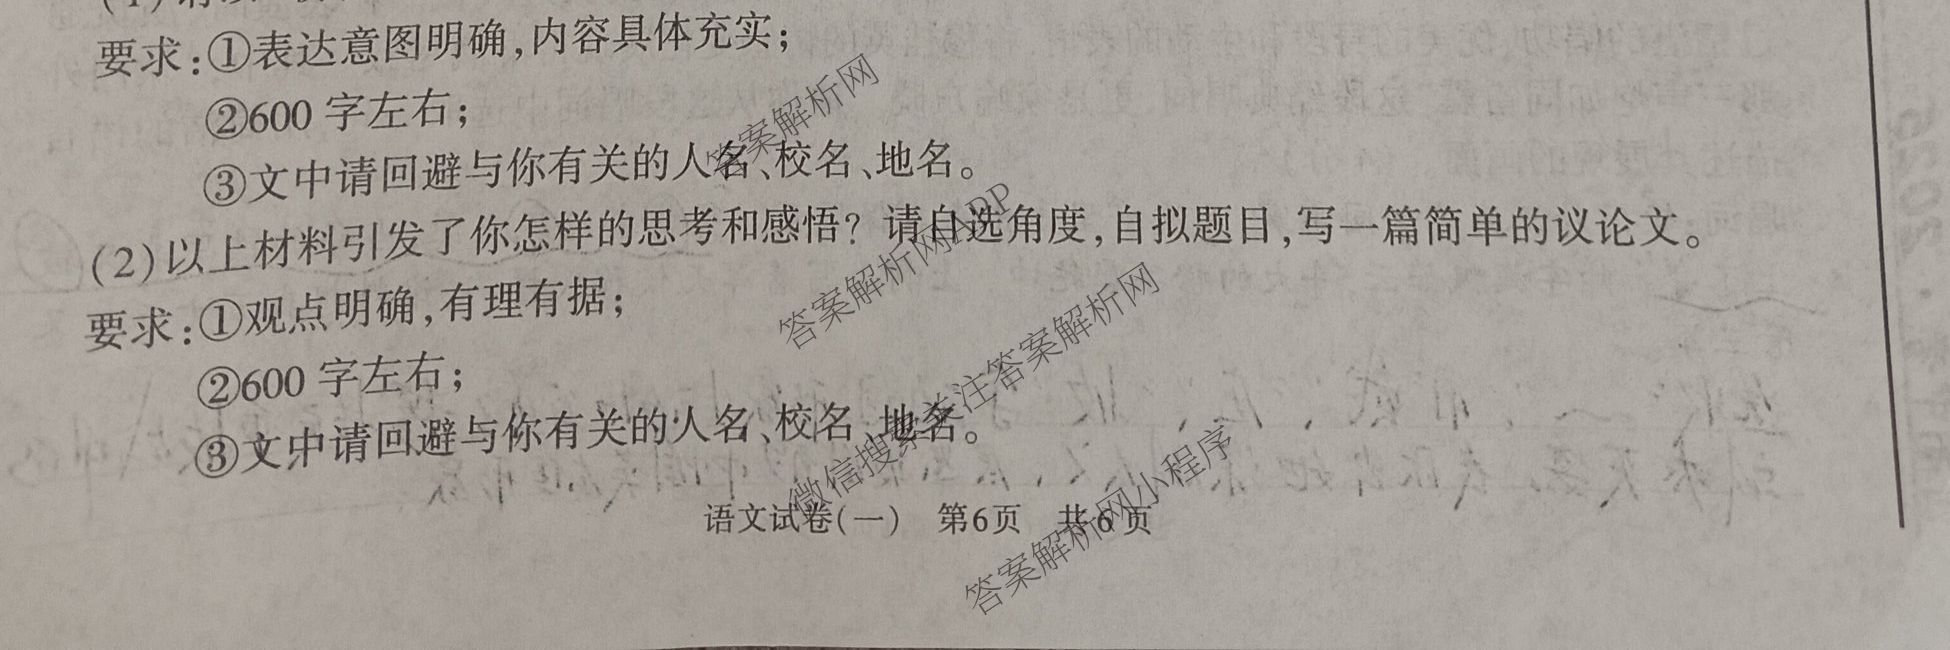 要求:①表达意图明确,内容具体充实;
②600 字左右;
③文中请回避与你有关的人名、校名、地名。
(2)以上材料引发了你怎样的思考和感悟?请自选角度,自拟题目,写一篇简单的议论文。
要求:①观点明确,有理有据;
②600 字左右;
③文中请回避与你有关的人名、校名、地名。
语文试卷(一) 第6页 共6页
答案解析网
答案解析网APP
微信搜索关注答案解析网
答案解析网小程序